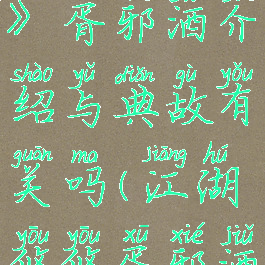 》 胥邪酒介
shào yǔ diǎn gù yǒu
绍与典故有
guān ma jiāng hú
关吗(江湖
yōu yōu xū xié jiǔ
悠悠胥邪酒